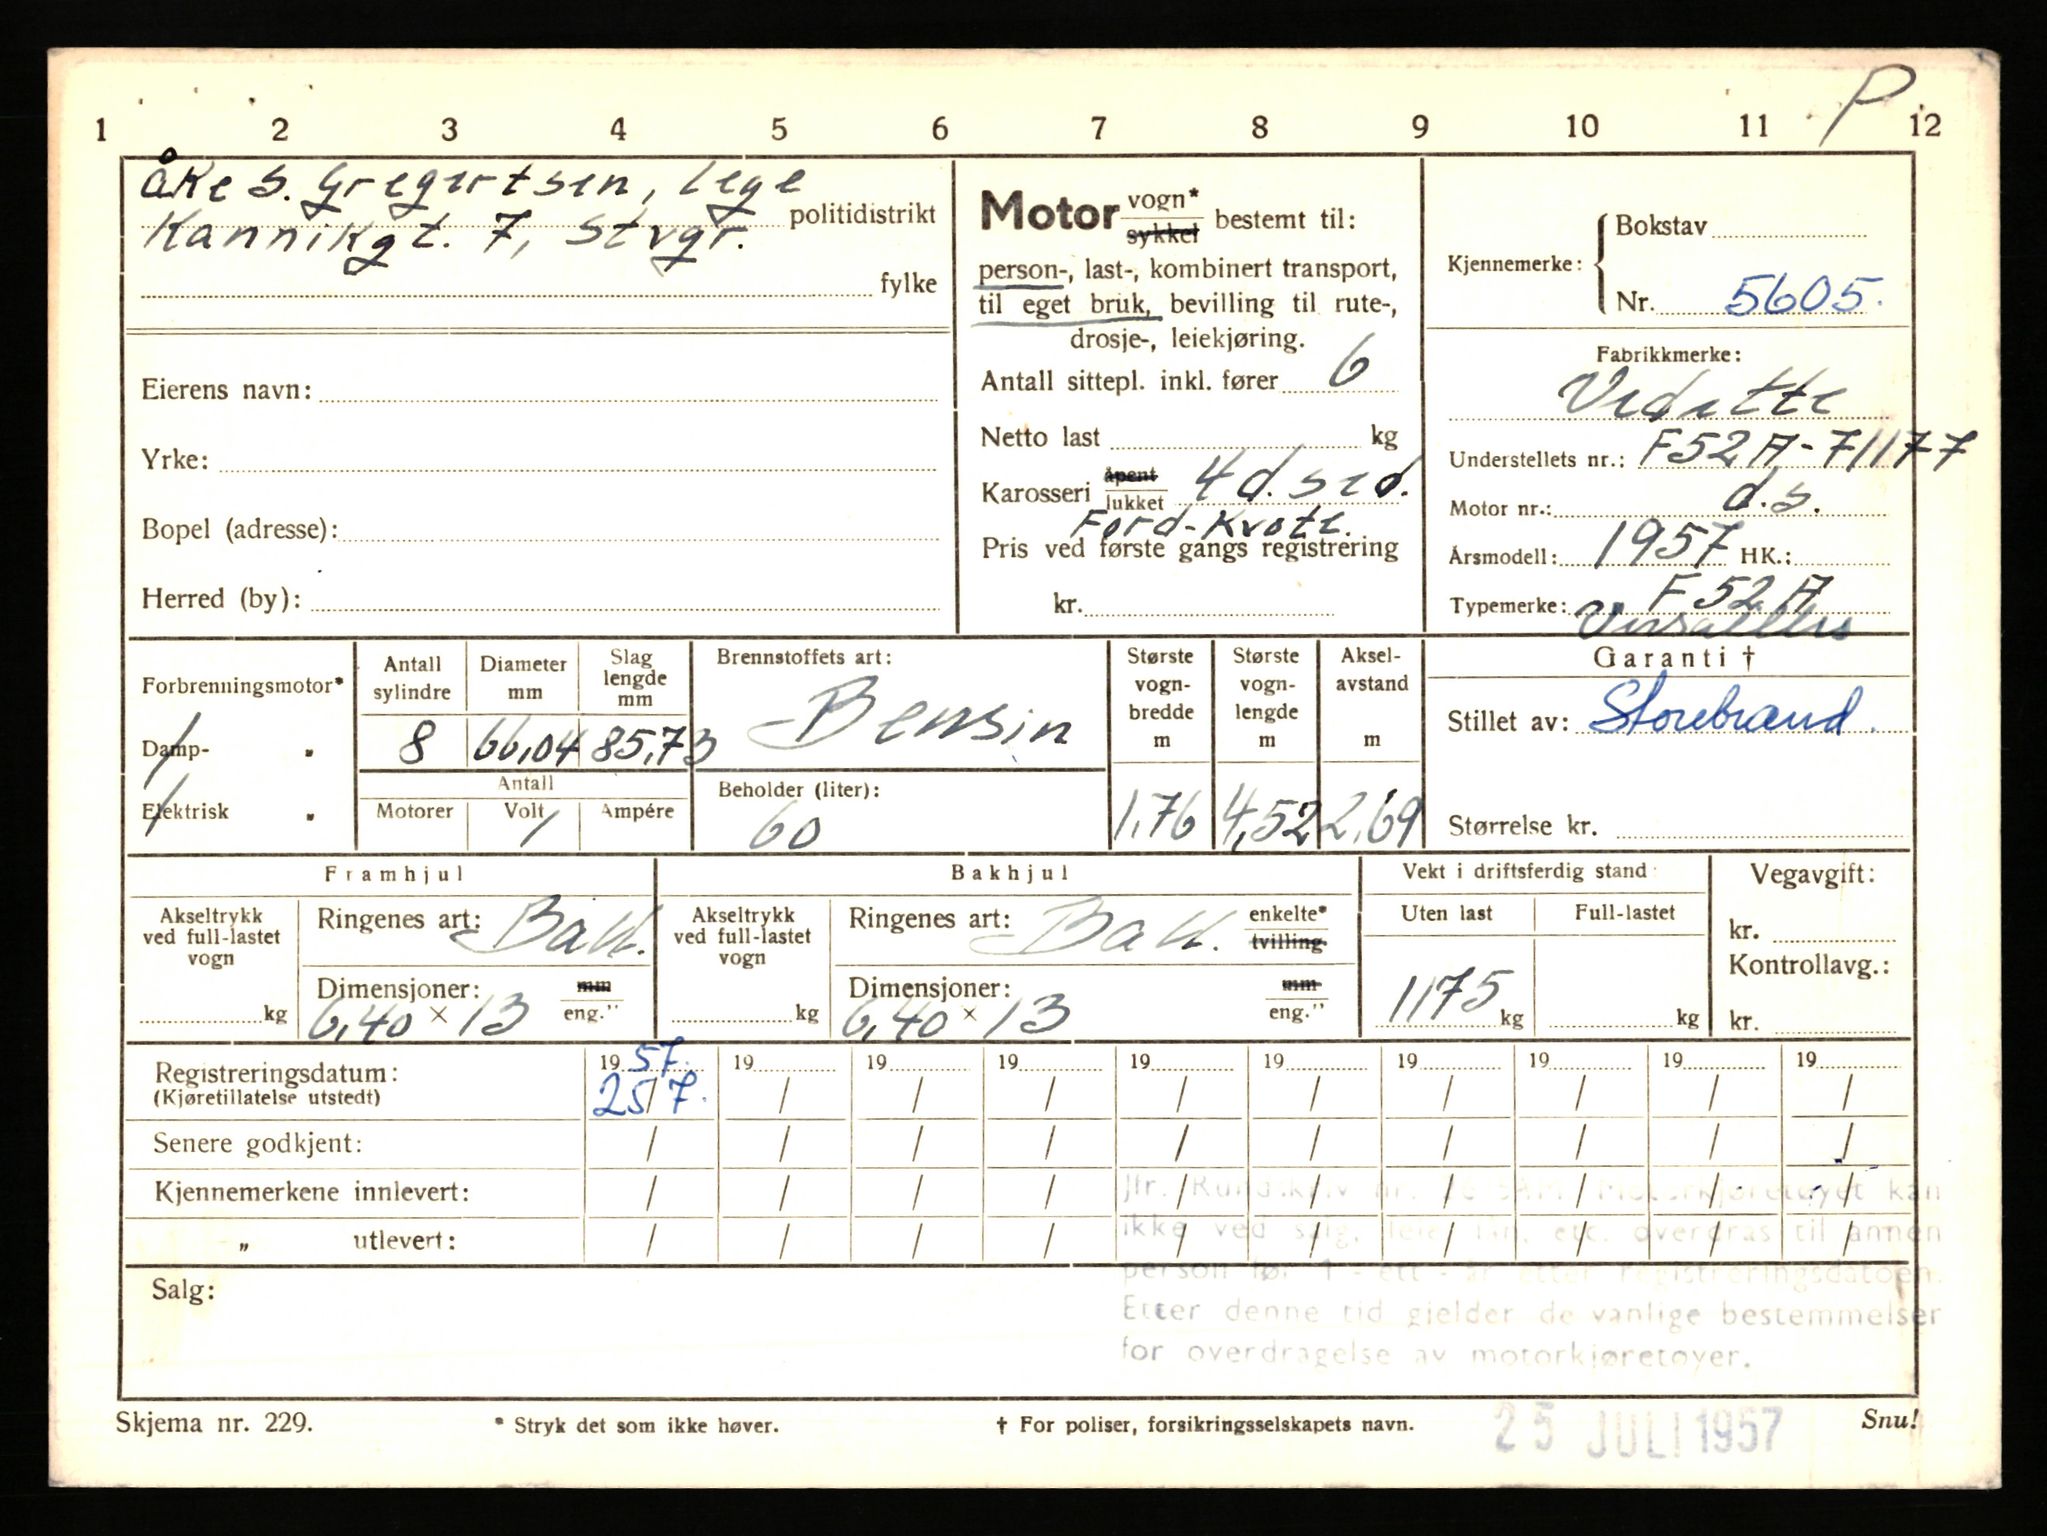 P
1 2 3 4 5 6 7 8 9 10 11 12
Åke S. Gregertsen, lege
politidistrikt
Kannikgt. 7, Stvgr.
fylke
Eierens navn:
Yrke:
Bopel (adresse):
Herred (by):
Motor vogn* sykkel bestemt til:
person-, last-, kombinert transport,
til eget bruk, bevilling til rute-,
drosje-, leiekjøring.
Antall sittepl. inkl. fører 6
Netto last kg
Karosseri åpent lukket 4 d. sed.
Ford-Kvote.
Pris ved første gangs registrering
kr.
Kjennemerke: Bokstav
Nr. 5605.
Fabrikkmerke:
Vedette
Understellets nr.: F52A-71177
Motor nr.: d.s.
Årsmodell: 1957 HK.:
Typemerke: F52A
Versailles
Forbrenningsmotor*
Damp- „
Elektrisk „
Antall sylindre
8
Diameter mm
66,04
Slag lengde mm
85,73
Antall
Motorer Volt Ampére
Brennstoffets art:
Bensin
Beholder (liter):
60
Største vogn-bredde m
1,76
Største vogn-lengde m
4,52
Aksel-avstand m
2,69
Garanti †
Stillet av: Storebrand.
Størrelse kr.
Framhjul
Akseltrykk ved full-lastet vogn
kg
Ringenes art: Ball.
Dimensjoner: mm eng."
6,40 × 13
Bakhjul
Akseltrykk ved full-lastet vogn
kg
Ringenes art: Ball. enkelte* tvilling
Dimensjoner: mm eng."
6,40 × 13
Vekt i driftsferdig stand
Uten last Full-lastet
1175 kg kg
Vegavgift:
kr.
Kontrollavg.:
kr.
Registreringsdatum: 19 57. 19 19 19 19 19 19 19 19 19
(Kjøretillatelse utstedt) 25/7. / / / / / / / / /
Senere godkjent: / / / / / / / / / /
Kjennemerkene innlevert: / / / / / / / / / /
„ utlevert: / / / / / / / / / /
Jfr. Rundskriv nr. Motorkjøretøyet kan
ikke ved salg, leie, lån, etc. overdras til annen
person før 1 - ett - år etter registreringsdatoen.
Etter denne tid gjelder de vanlige bestemmelser
for overdragelse av motorkjøretøyer.
Salg:
Skjema nr. 229. * Stryk det som ikke høver. † For poliser, forsikringsselskapets navn. 25 JULI 1957 Snu!